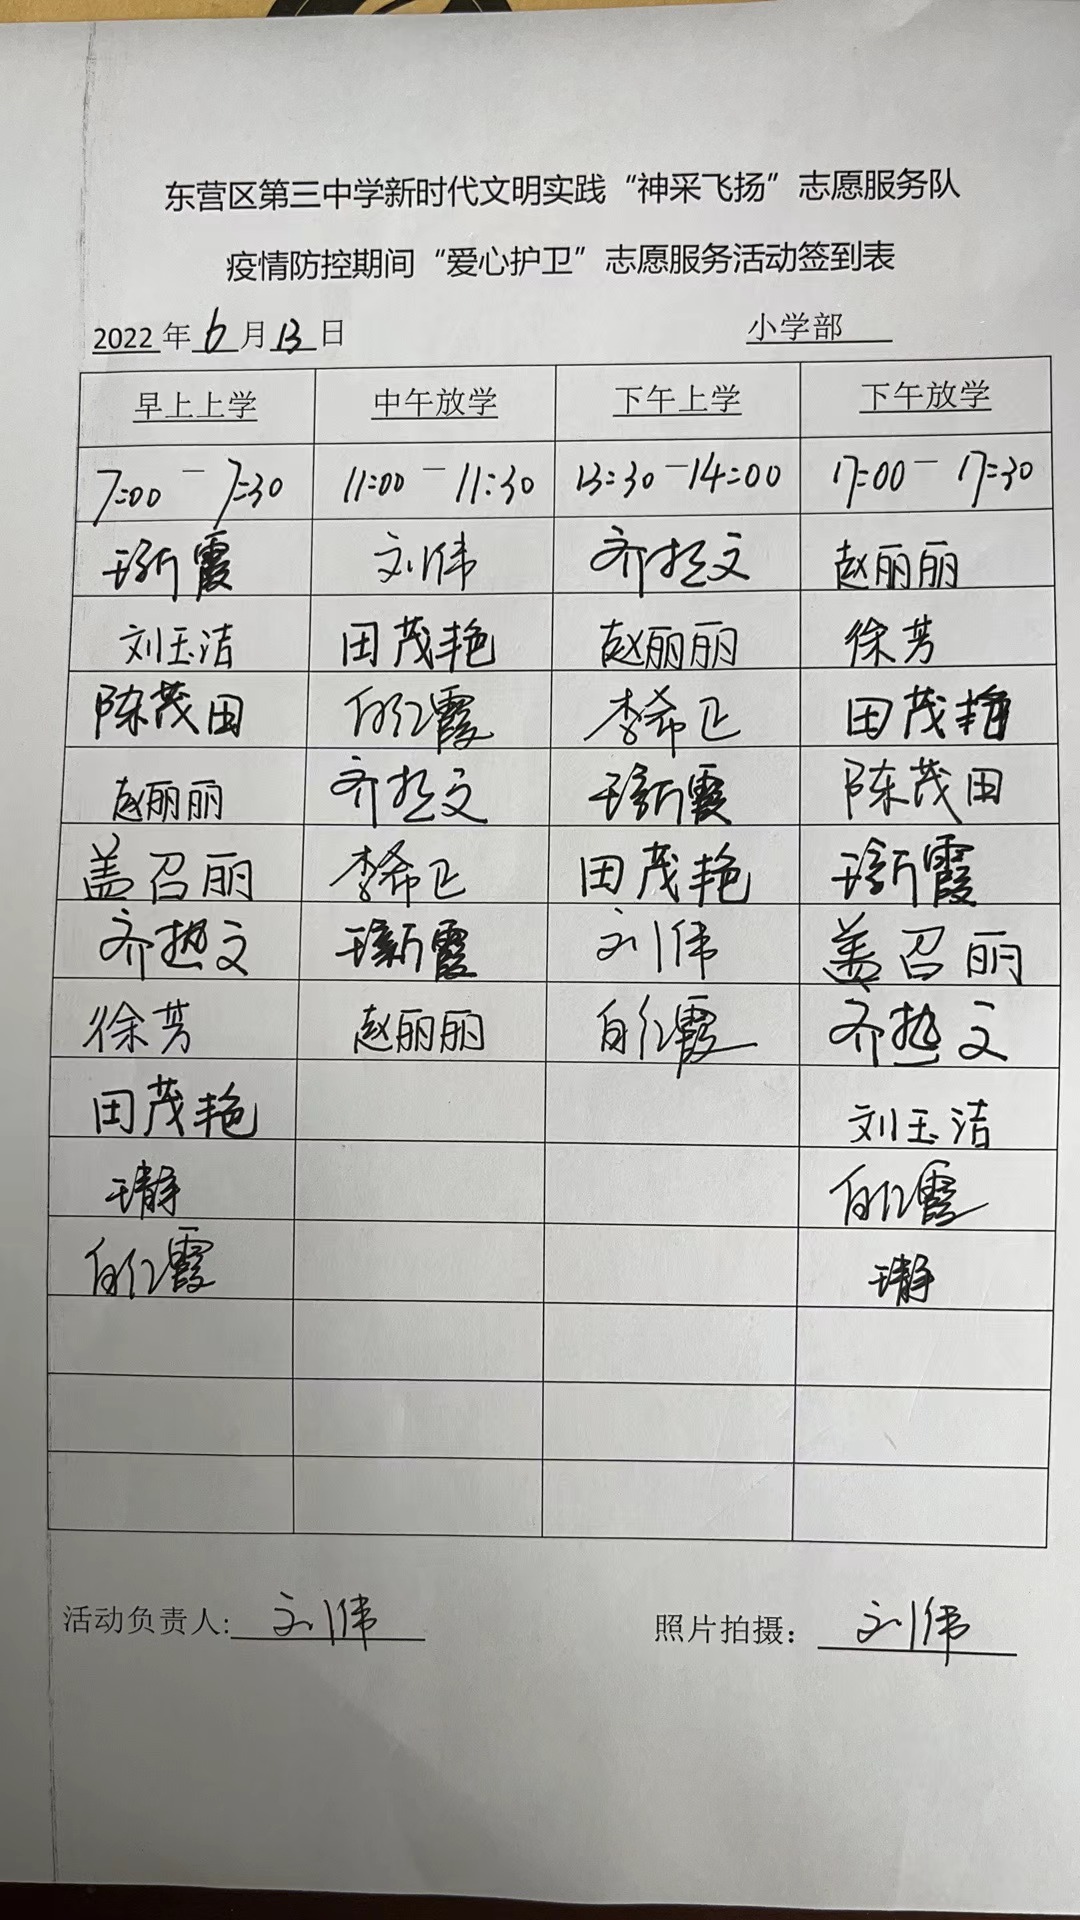 东营区第三中学新时代文明实践“神采飞扬”志愿服务队
疫情防控期间“爱心护卫”志愿服务活动签到表
2022年6月13日 小学部
早上上学 中午放学 下午上学 下午放学
7:00-7:30 11:00-11:30 13:30-14:00 17:00-17:30
王新霞 刘伟 齐文 赵丽丽
刘玉洁 田茂艳 赵丽丽 徐芳
陈茂田 白红霞 李希卫 田茂艳
赵丽丽 齐文 王新霞 陈茂田
盖召丽 李希卫 田茂艳 王新霞
齐文 王新霞 刘伟 盖召丽
徐芳 赵丽丽 白红霞 齐文
田茂艳 刘玉洁
王静 白红霞
白红霞 王静
活动负责人:刘伟 照片拍摄：刘伟